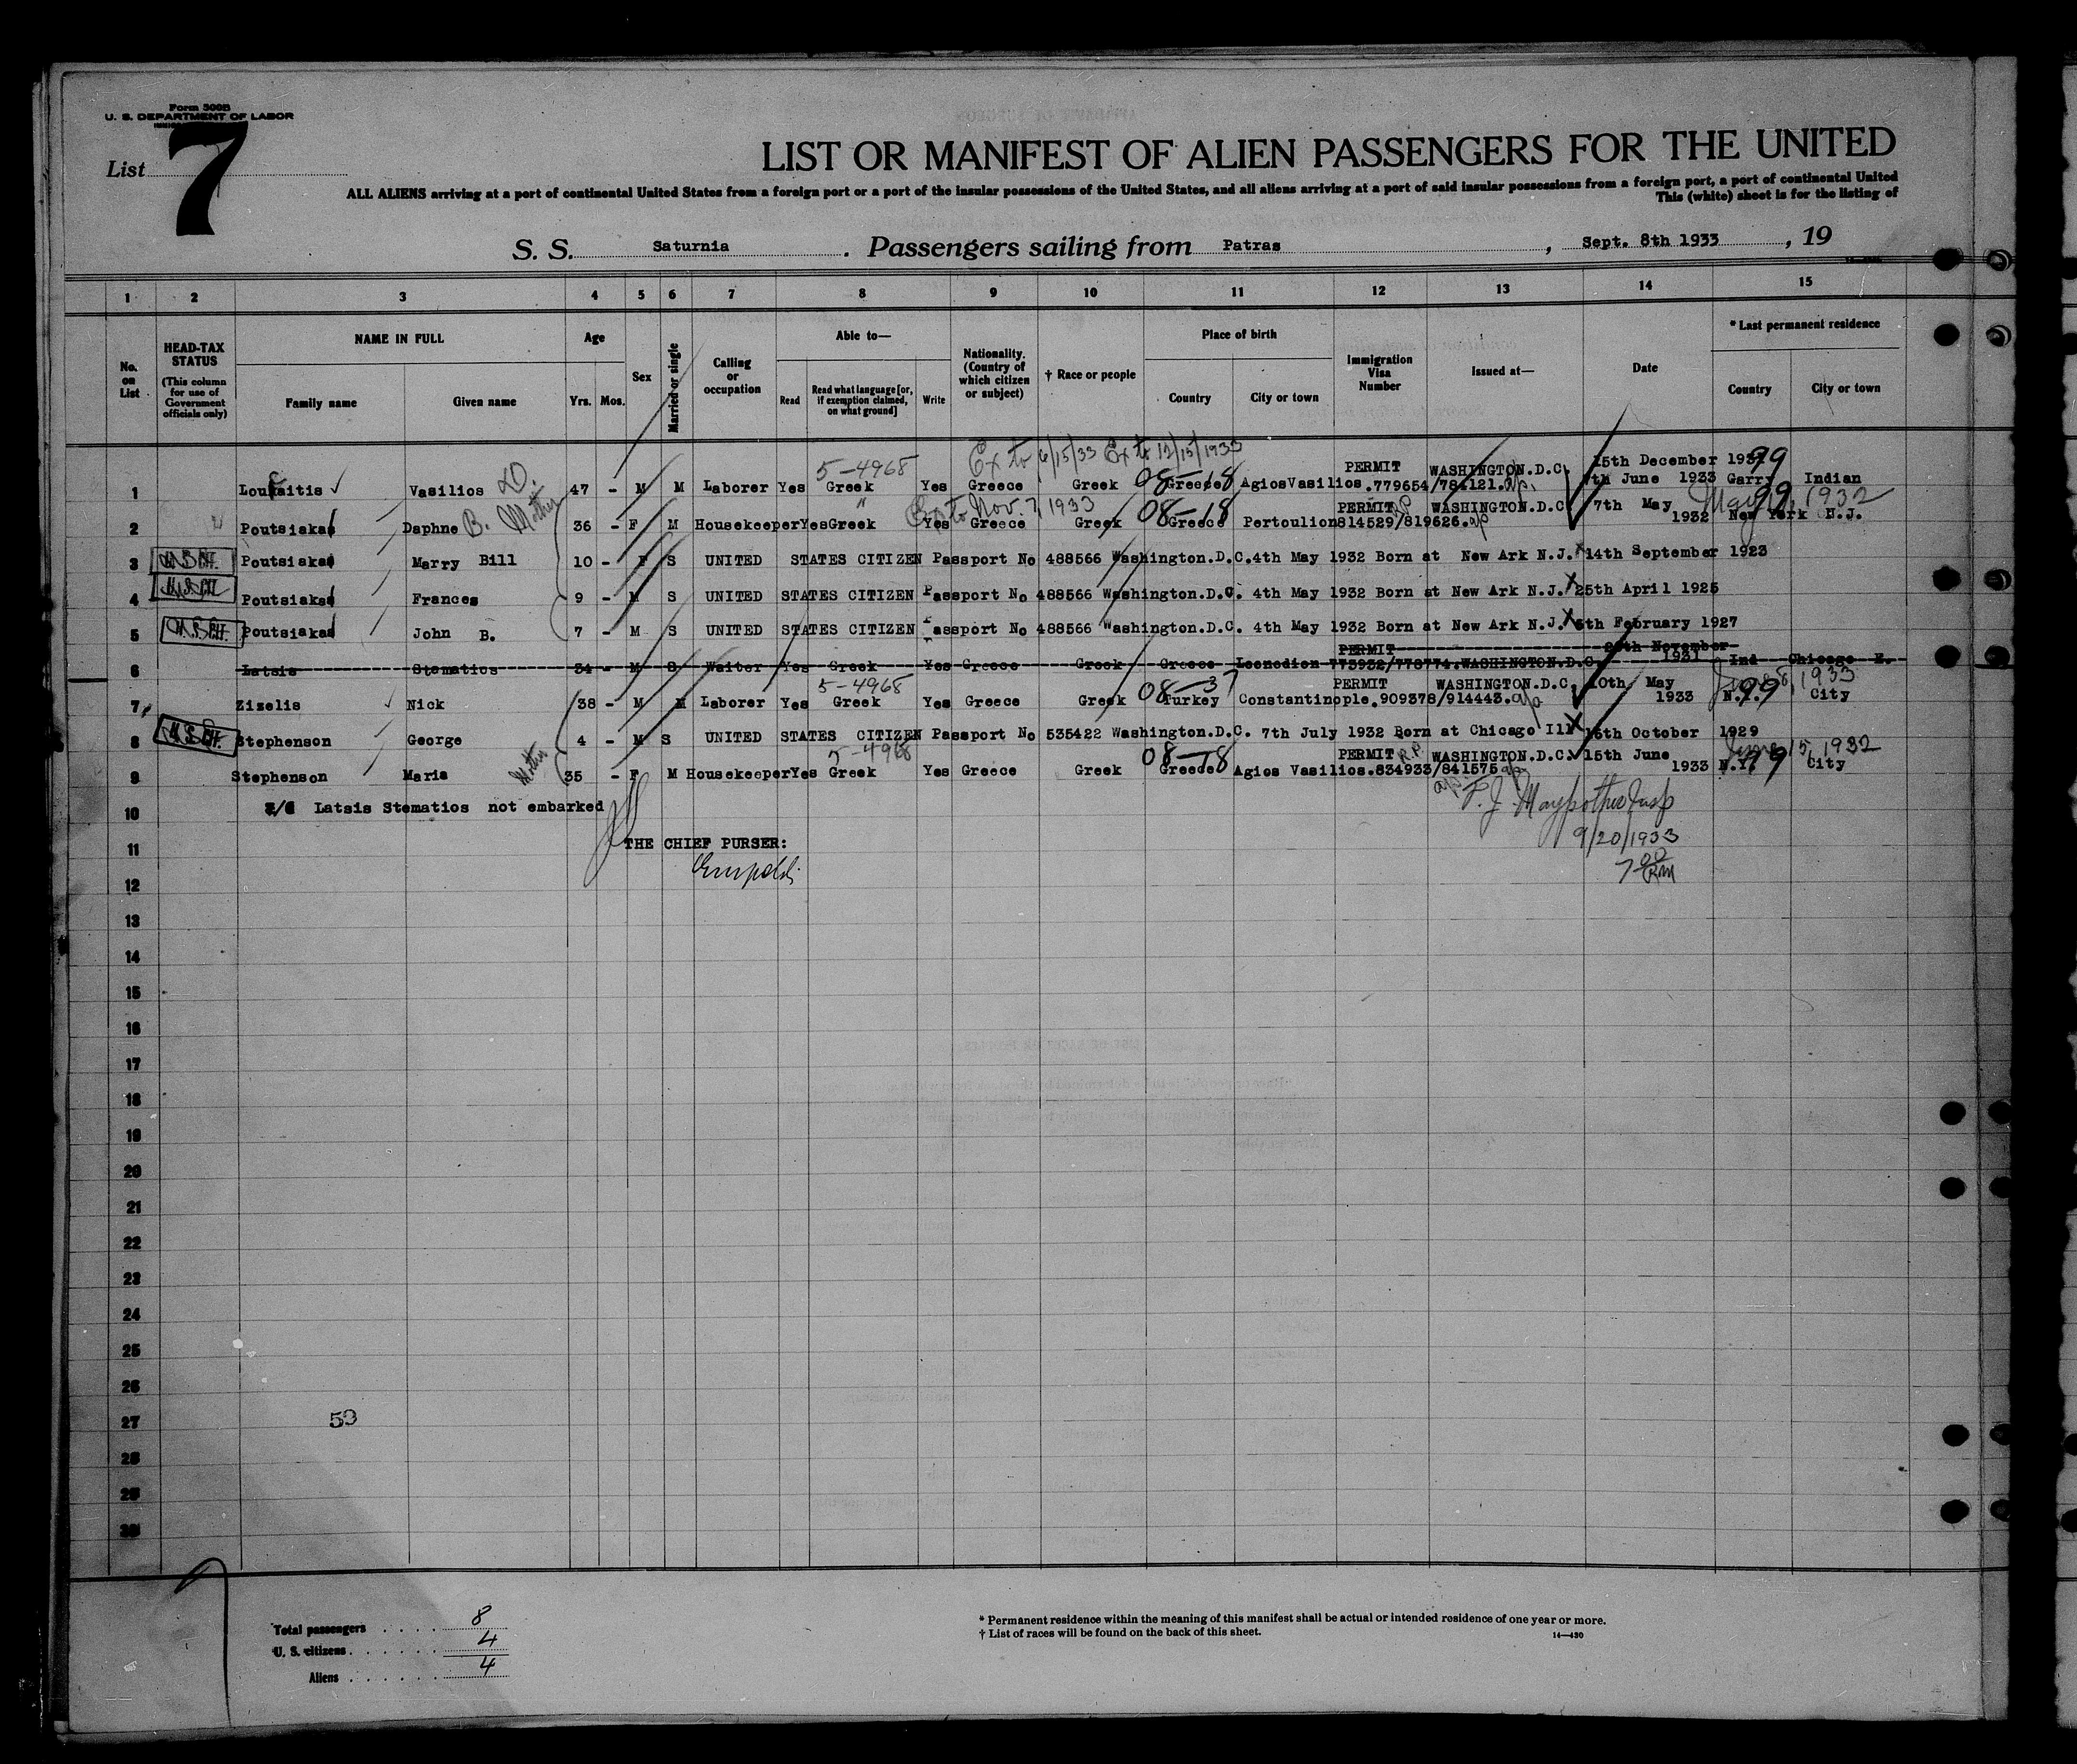 Form 500B
U. S. DEPARTMENT OF LABOR
List 7
LIST OR MANIFEST OF ALIEN PASSENGERS FOR THE UNITED
ALL ALIENS arriving at a port of continental United States from a foreign port or a port of the insular possessions of the United States, and all aliens arriving at a port of said insular possessions from a foreign port, a port of continental United
This (white) sheet is for the listing of
S. S. Saturnia. Passengers sailing from Patras, Sept. 8th 1933, 19
1 2 3 4 5 6 7 8 9 10 11 12 13 14 15
No. on List
HEAD-TAX STATUS
(This column for use of Government officials only)
NAME IN FULL
Family name Given name
Age
Yrs. Mos.
Sex
Married or single
Calling or occupation
Able to—
Read
Read what language [or, if exemption claimed, on what ground]
Write
Nationality. (Country of which citizen or subject)
† Race or people
Place of birth
Country City or town
Immigration Visa Number
Issued at—
Date
* Last permanent residence
Country City or town
5-4968 Ex to 6/15/33 Ex to 12/15/1933
PERMIT WASHINGTON.D.C. 15th December 99
1 Vasilios D. 47 - M M Laborer Yes Greek Yes Greece Greek 08-18 Greece Agios Vasilios .779654/ 7th June 1933 Garry Indian
" Ex to Nov. 7, 1933 PERMIT WASHINGTON.D.C. 7th May 1932 99
2 Poutsiakas Daphne B. Mother 36 - F M Housekeeper Yes Greek Yes Greece Greek 08-18 Greece Pertoulion 814529/819626. New York N.J.
3 Poutsiakas Marry Bill 10 - F S UNITED STATES CITIZEN Passport No 488566 Washington.D.C. 4th May 1932 Born at New Ark N.J. 14th September 1923
4 Poutsiakas Frances 9 - M S UNITED STATES CITIZEN Passport No 488566 Washington.D.C. 4th May 1932 Born at New Ark N.J. 25th April 1925
5 Poutsiakas John B. 7 - M S UNITED STATES CITIZEN Passport No 488566 Washington.D.C. 4th May 1932 Born at New Ark N.J. 5th February 1927
PERMIT November 1931
6 Latsis Stematios 34 - M S Waiter Yes Greek Yes Greece Greek Greece Leonedion 773932/778774.WASHINGTON.D.C. Ind Chicago
5-4968 PERMIT WASHINGTON.D.C. 10th May 1933
7 Zizelis Nick 38 - M M Laborer Yes Greek Yes Greece Greek 08-37 Turkey Constantinople.909378/914443. N.Y. 99 City
8 Stephenson George 4 - M S UNITED STATES CITIZEN Passport No 535422 Washington.D.C. 7th July 1932 Born at Chicago Ill 16th October 1929
5-4968 PERMIT R.P. WASHINGTON.D.C. 15th June 1933 June 15, 1932
9 Stephenson Maria Mother 35 - F M Housekeeper Yes Greek Yes Greece Greek 08-18 Greece Agios Vasilios.834933/841575 N.Y. 99 City
10 Latsis Stematios not embarked
11 THE CHIEF PURSER:
9/20/1933
12
7 00
13
14
15
16
17
18
19
20
21
22
23
24
25
26
27 59
28
29
30
Total passengers 8
U. S. citizens 4
Aliens 4
* Permanent residence within the meaning of this manifest shall be actual or intended residence of one year or more.
† List of races will be found on the back of this sheet.
14—430